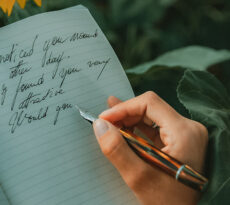 noticed you around
other day.
I found you very
attractive
Would you